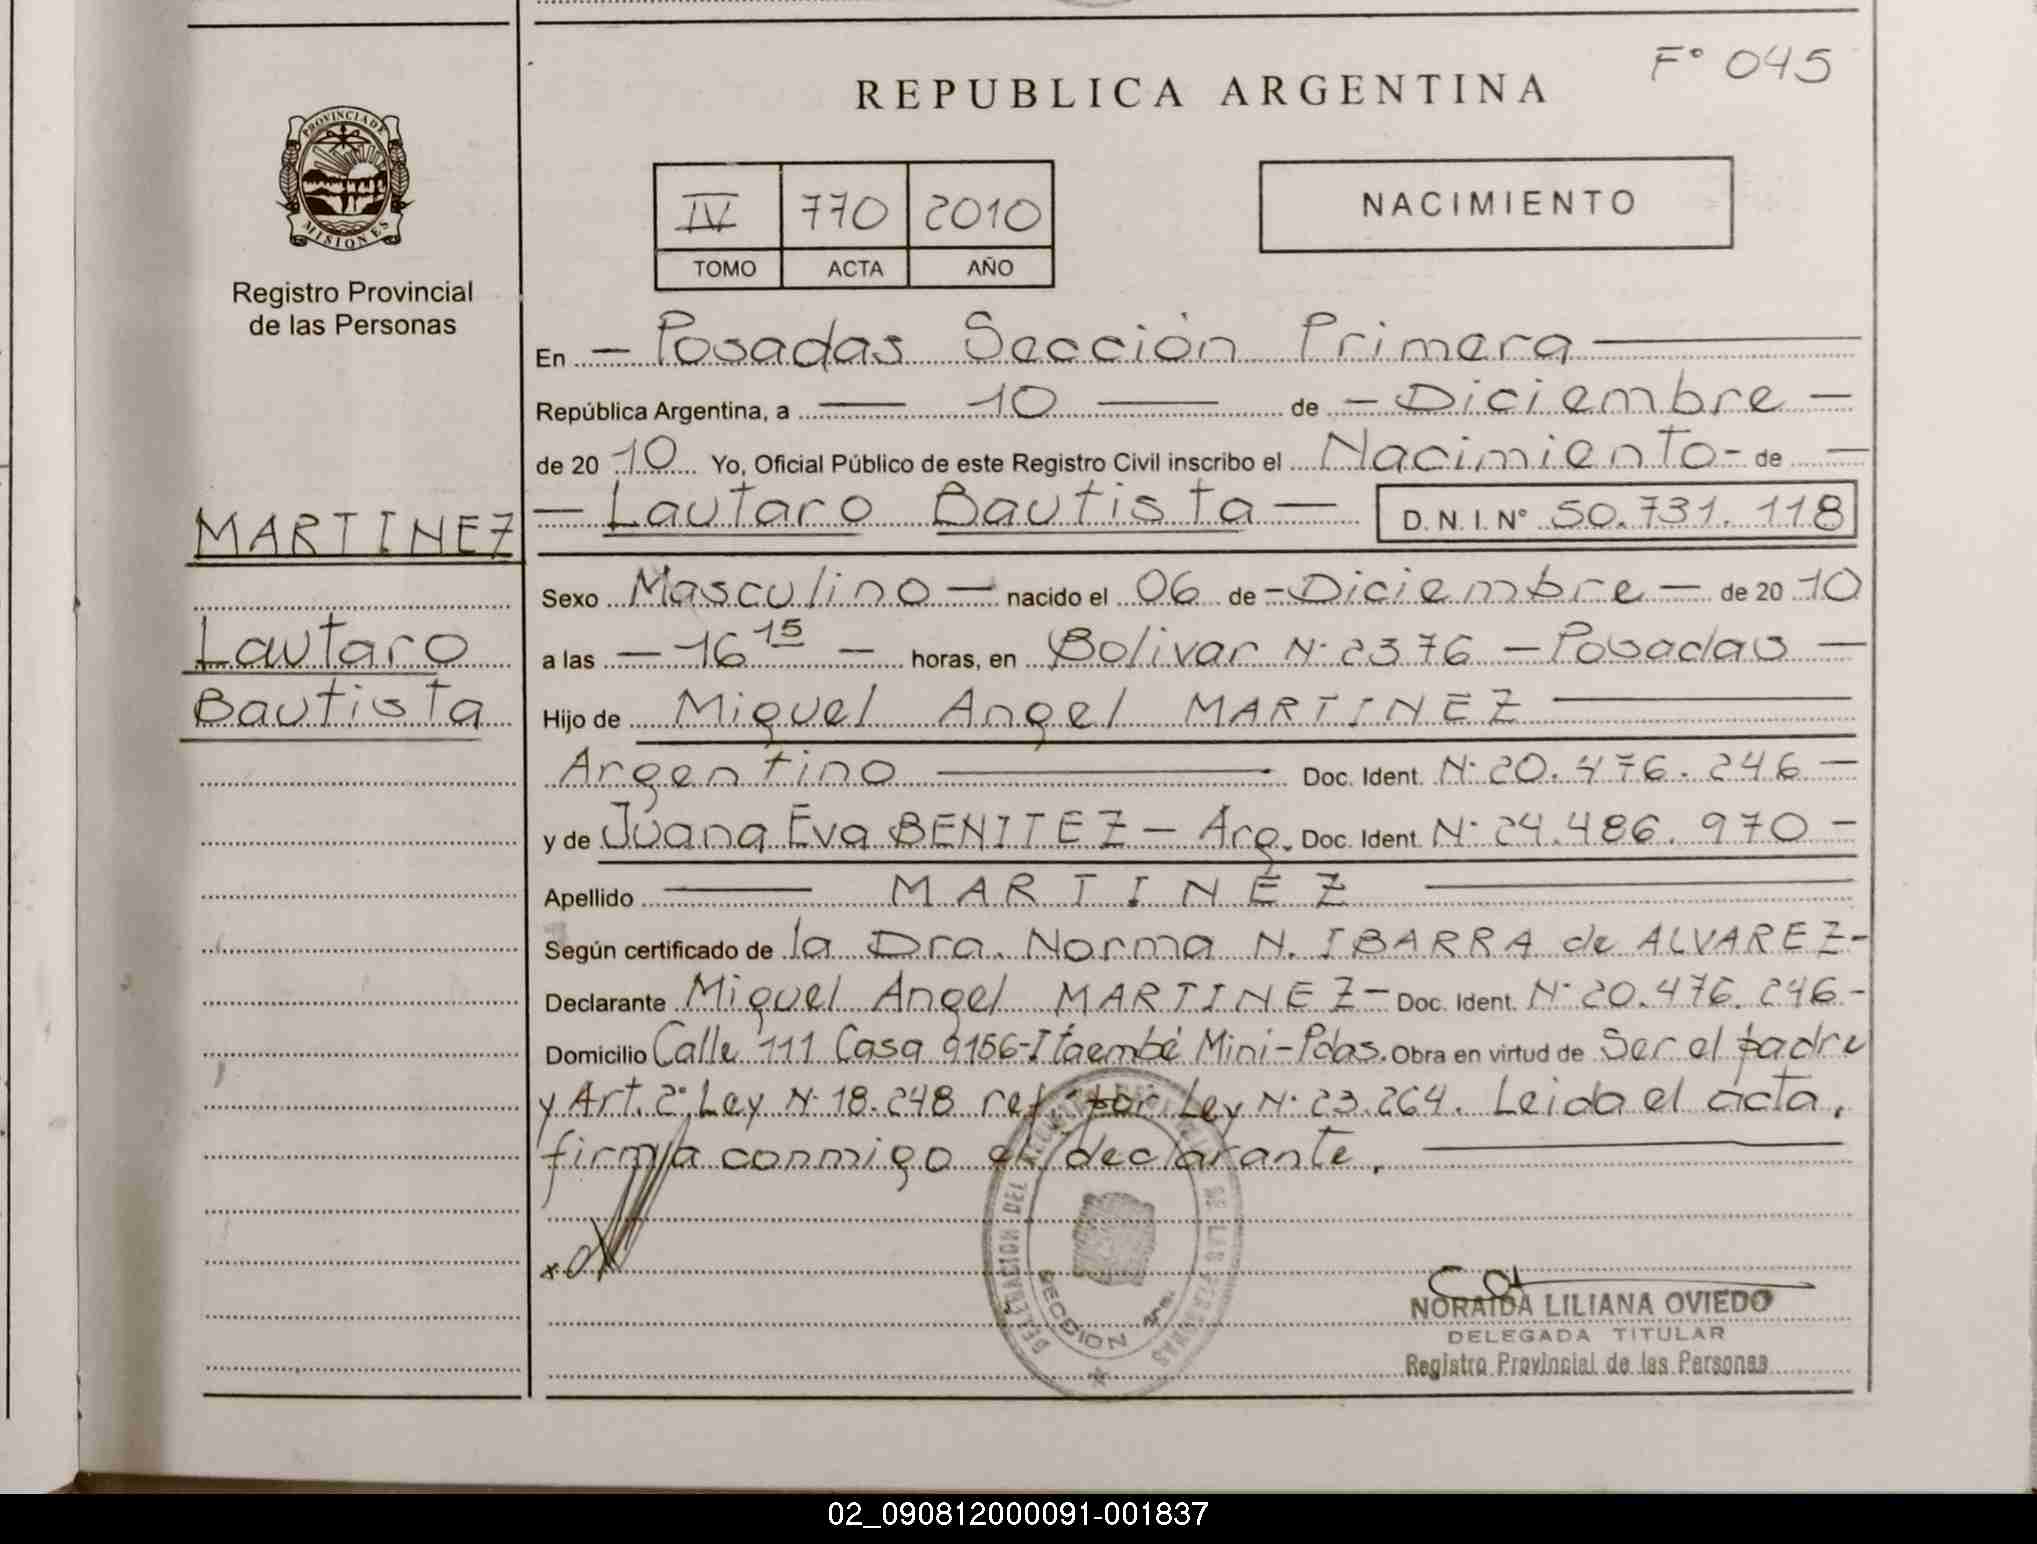 F° 045
REPUBLICA ARGENTINA
PROVINCIA DE
MISIONES
Registro Provincial
de las Personas
IV 770 2010
TOMO ACTA AÑO
NACIMIENTO
MARTINEZ
Lautaro
Bautista
En - Posadas Sección Primera
República Argentina, a 10 de - Diciembre -
de 20 10 Yo, Oficial Público de este Registro Civil inscribo el Nacimiento - de
- Lautaro Bautista - D.N.I. N° 50.731.118
Sexo Masculino - nacido el 06 de - Diciembre - de 20 10
a las - 16 15 - horas, en Bolivar N° 2376 - Posadas -
Hijo de Miguel Angel MARTINEZ
Argentino Doc. Ident. N° 20.476.246 -
y de Juana Eva BENITEZ - Arg. Doc. Ident. N° 24.486.970 -
Apellido MARTINEZ
Según certificado de la Dra. Norma N. IBARRA de ALVAREZ -
Declarante Miguel Angel MARTINEZ - Doc. Ident. N° 20.476.246 -
Domicilio Calle 111 Casa 9156 - Itaembé Mini - Pdas. Obra en virtud de Ser el padre
y Art. 2° Ley N° 18.248 ref. por Ley N° 23.264. Leida el acta,
firma conmigo el declarante.
SECCION 1ra.
NORAIDA LILIANA OVIEDO
DELEGADA TITULAR
Registro Provincial de las Personas
02_090812000091-001837